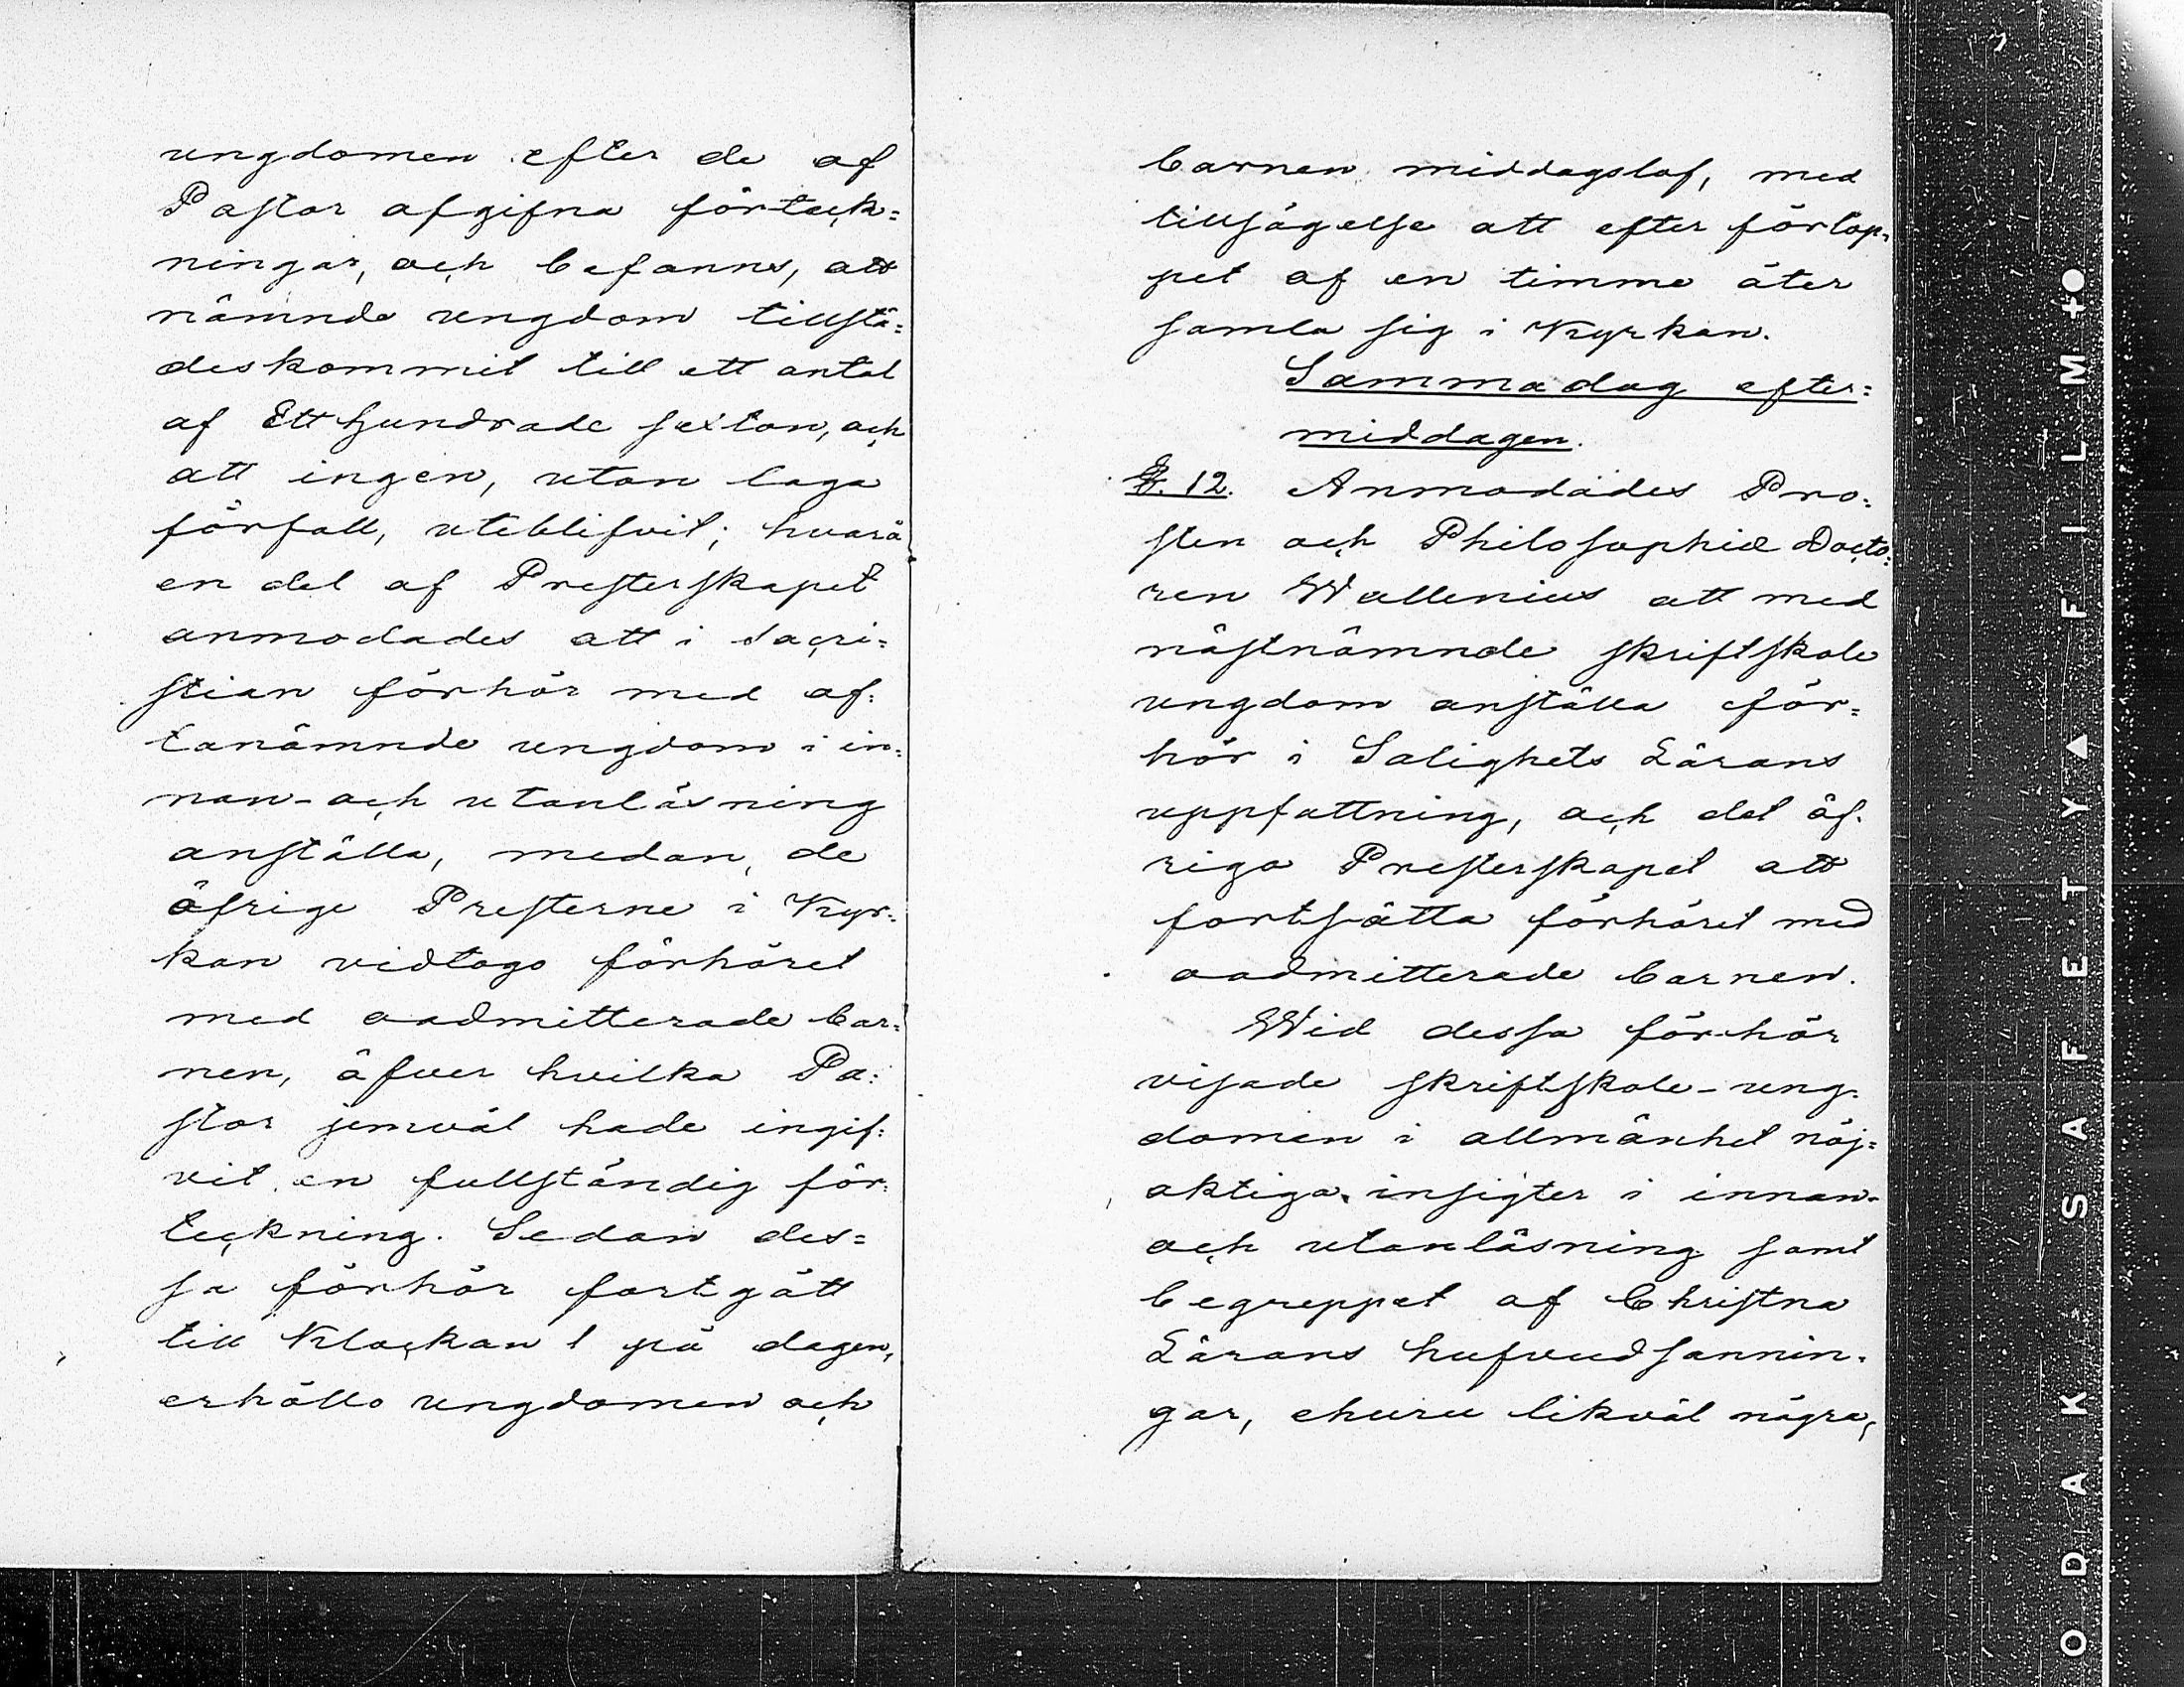 ungdomen efter de af
Pastor afgifna förteck=
ningar, och befanns, att
nämnde ungdom tillstä=
deskommit till ett antal
af Ett hundrade sexton, och
att ingen, utan laga
förfall, uteblifvit; hvarå
en del af Presterskapet
anmodades att i Sacri=
stian förhör med of=
tanämnde ungdom i in=
nan- och utanläsning
anställa, medan, de
öfrige Presterne i Kyr=
kan vidtogo förhöret
med oadmitterade bar=
nen, öfver hvilka Pa=
stor jemväl hade ingif=
vit en fullständig för=
teckning. Sedan des=
sa förhör fortgått
till Klockan 1 på dagen,
erhöllo ungdomen och
barnen middagslof, med
tillsägelse att efter förlop=
pet af en timme åter
samla sig i Kyrkan.
Samma dag efter=
middagen.
§. 12. Anmodades Pro=
sten och Philosophiæ Docto=
ren Wallenius att med
nästnämnde skriftskole
ungdom anställa för=
hör i Salighets Lärans
uppfattning, och det öf=
riga Presterskapet att
fortsätta förhöret med
oadmitterade barnen.
Wid dessa förhör
visade skriftskole-ung=
domen i allmänhet nöj=
aktiga insigter i innan-
och utanläsning samt
begreppet af Christna
Lärans hufvudsannin=
gar, ehuru likväl några,
ODAK SAFETY▲FILM +●